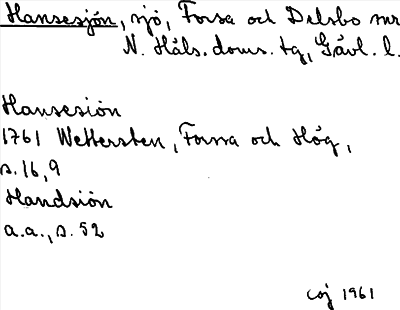 Hansesjön, sjö, Forsa och Delsbo snr
N. Häls. doms. tg, Gävl. l.
Hansesiön
1761 Wettersten, Forssa och Hög,
s. 16, 9
Handsiön
a.a., s. 52
coj 1961